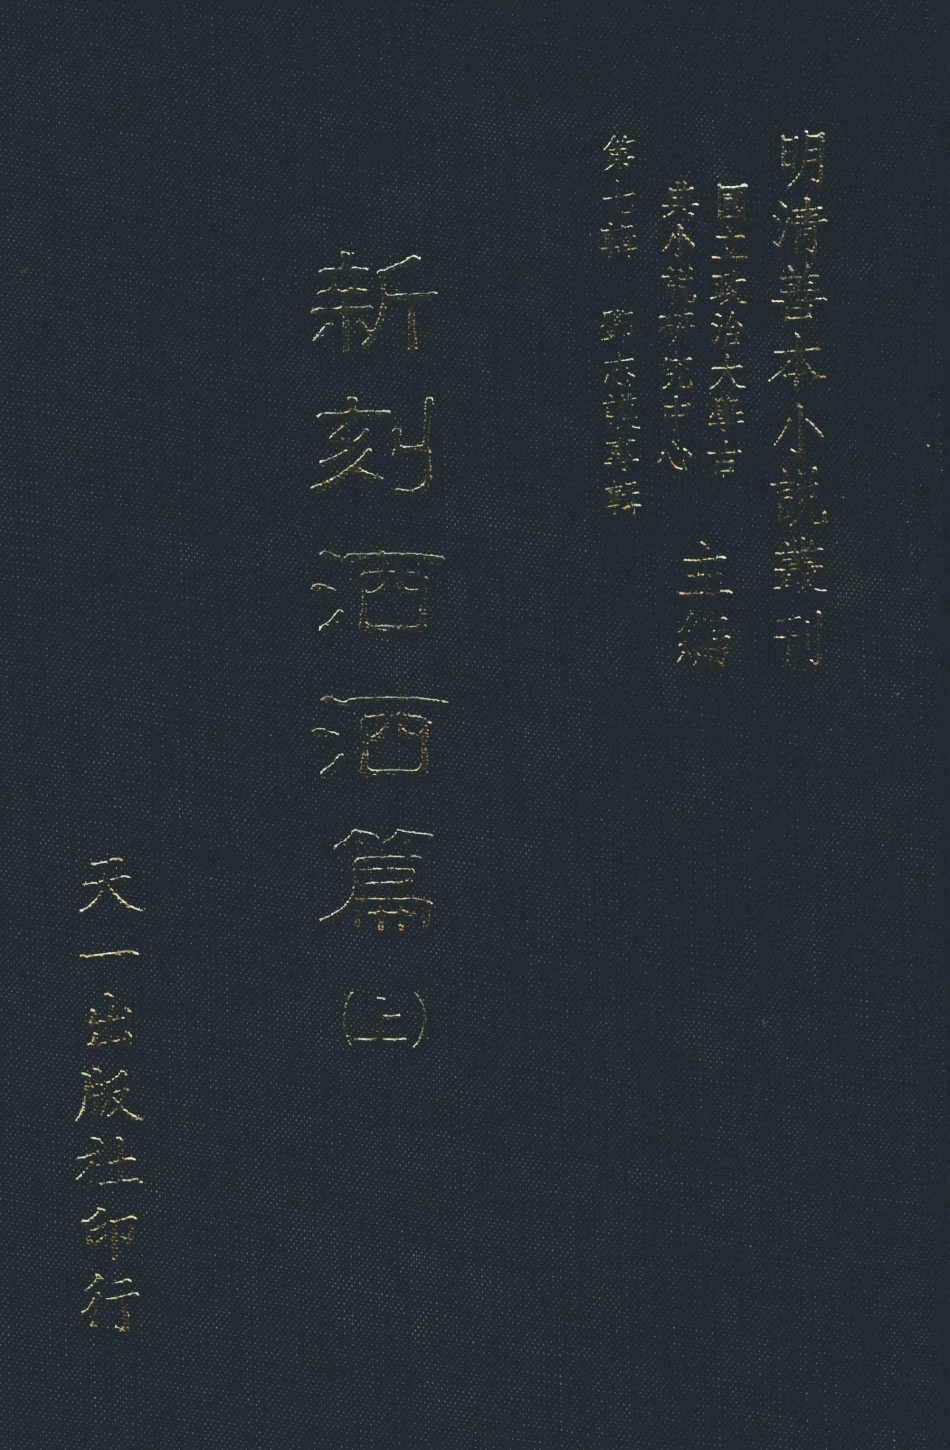 明清善本小說叢刊
國立政治大學古
典小說研究中心
主編
第七輯 鄧志謨專輯
新刻洒洒篇(上)
天一出版社印行